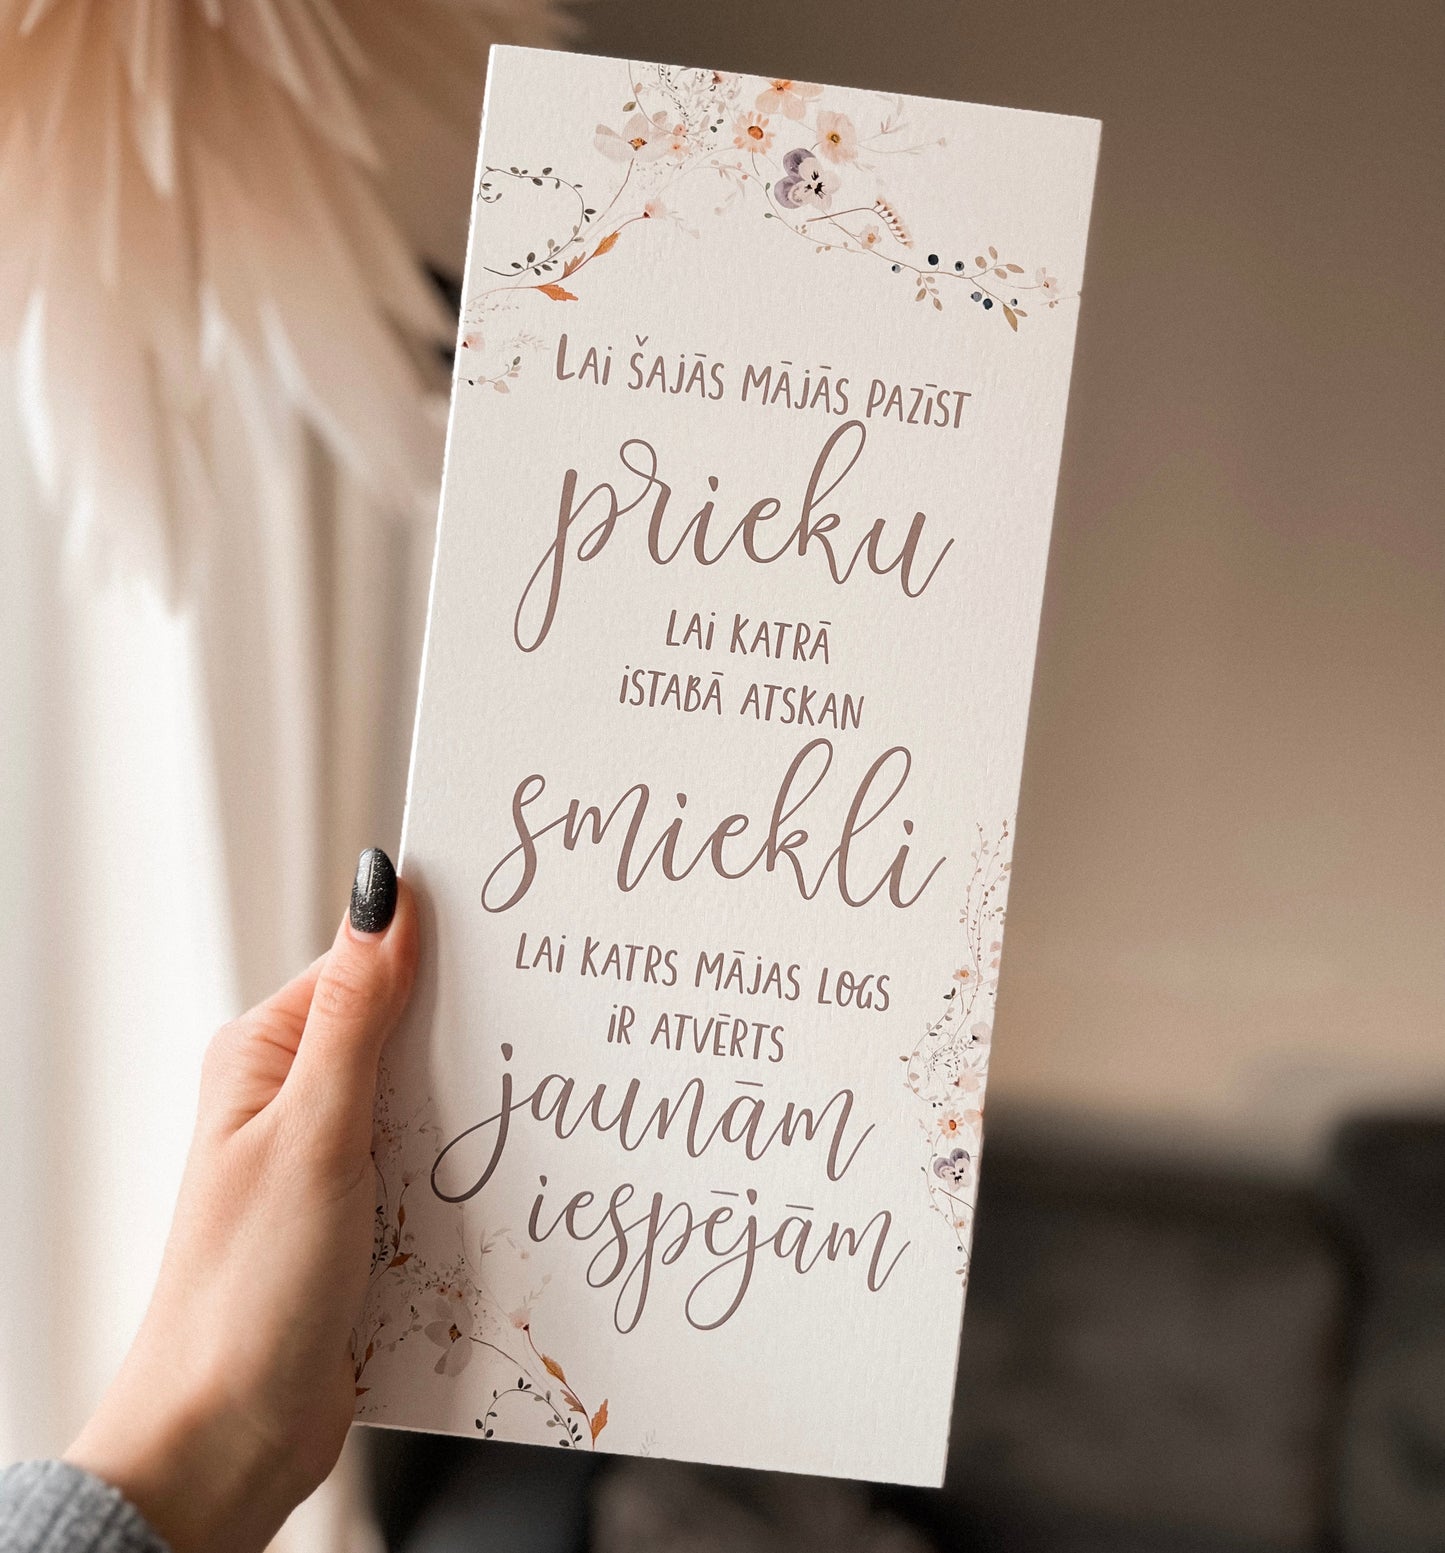 Lai šajās mājās pazīst
prieku
lai katrā
istabā atskan
smiekli
lai katrs mājas logs
ir atvērts
jaunām
iespējām